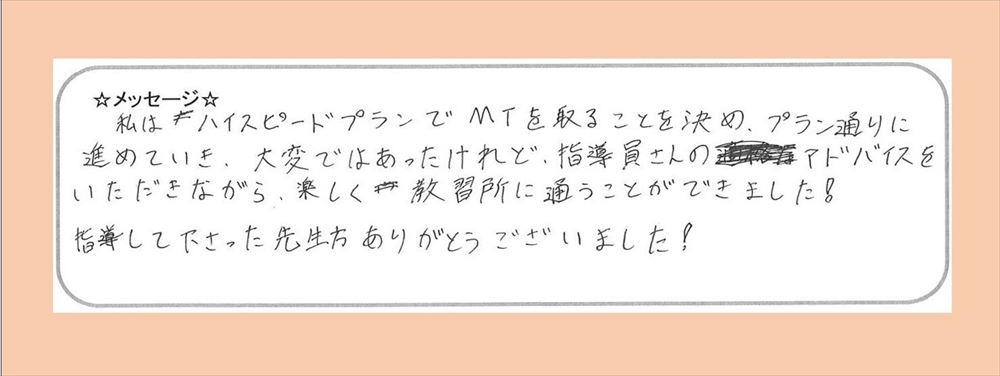 ☆メッセージ☆
私はハイスピードプランでMTを取ることを決め、プラン通りに
進めていき、大変ではあったけれど、指導員さんのアドバイスを
いただきながら、楽しく教習所に通うことができました!
指導して下さった先生方ありがとうございました!